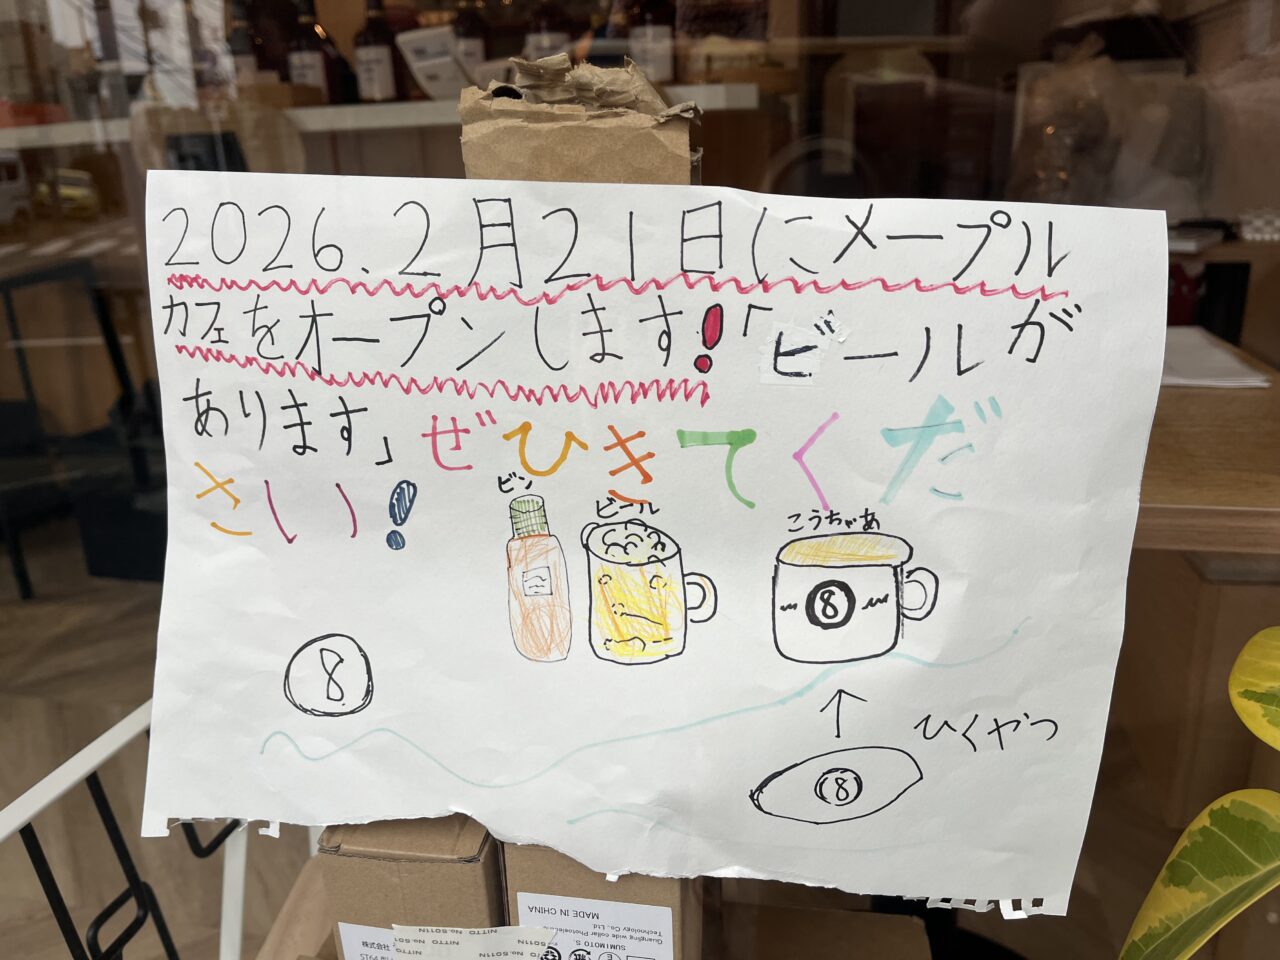 2026.2月21日にメープル
カフェをオープンします!「ビールが
あります」ぜひきてくだ
さい!
ビン
ビール
こうちゃあ
8
8
ひくやつ
8
MADE IN CHINA
Technology Co., Ltd.
SUMIMOTO S.
株式会社
NITTO No.5011N
NITTO No.5011N